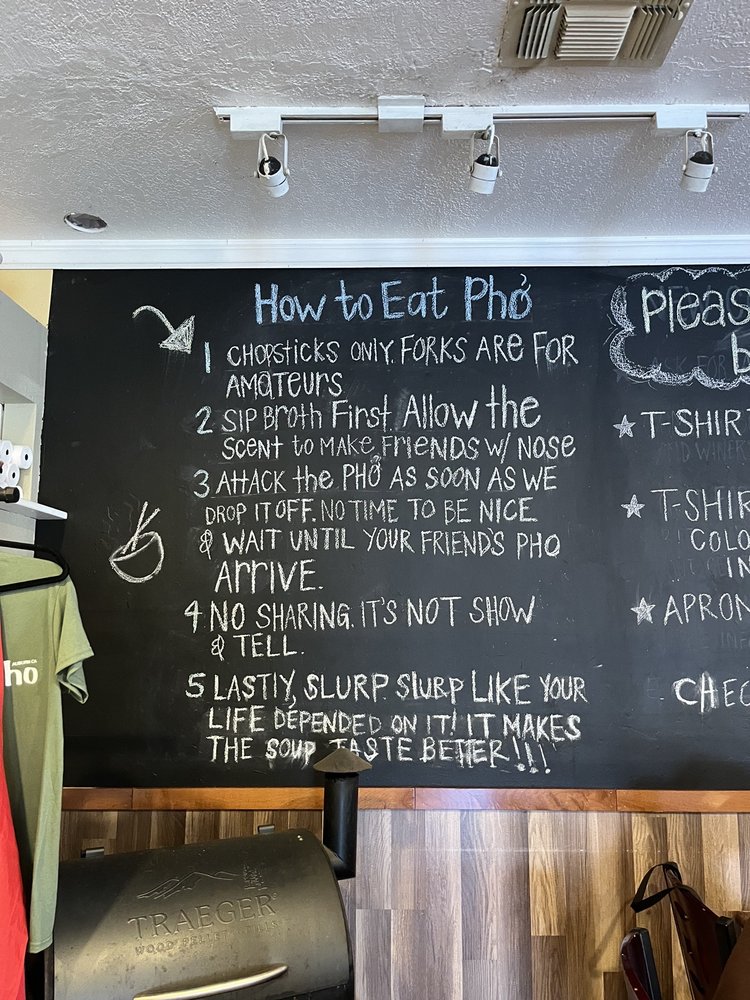 How to Eat Phở
1 CHOPSTICKS ONLY. FORKS ARE FOR
AMATEURS
2 SIP BROTH FIRST. ALLOW the
SCENT to MAKE FRIENDS W/ NOSE
3 ATTACK the PHỞ AS SOON AS WE
DROP IT OFF. NO TIME TO BE NICE
& WAIT UNTIL YOUR FRIENDS PHO
ARRIVE.
4 NO SHARING. IT'S NOT SHOW
& TELL.
5 LASTLY, SLURP SLURP LIKE YOUR
LIFE DEPENDED ON IT! IT MAKES
THE SOUP TASTE BETTER!!!
Pleas
b
★ T-SHIR
★ T-SHIR
COLO
IN
★ APRON
CHEC
AUBURN CA
ho
TRAEGER
WOOD PELLET GRILLS